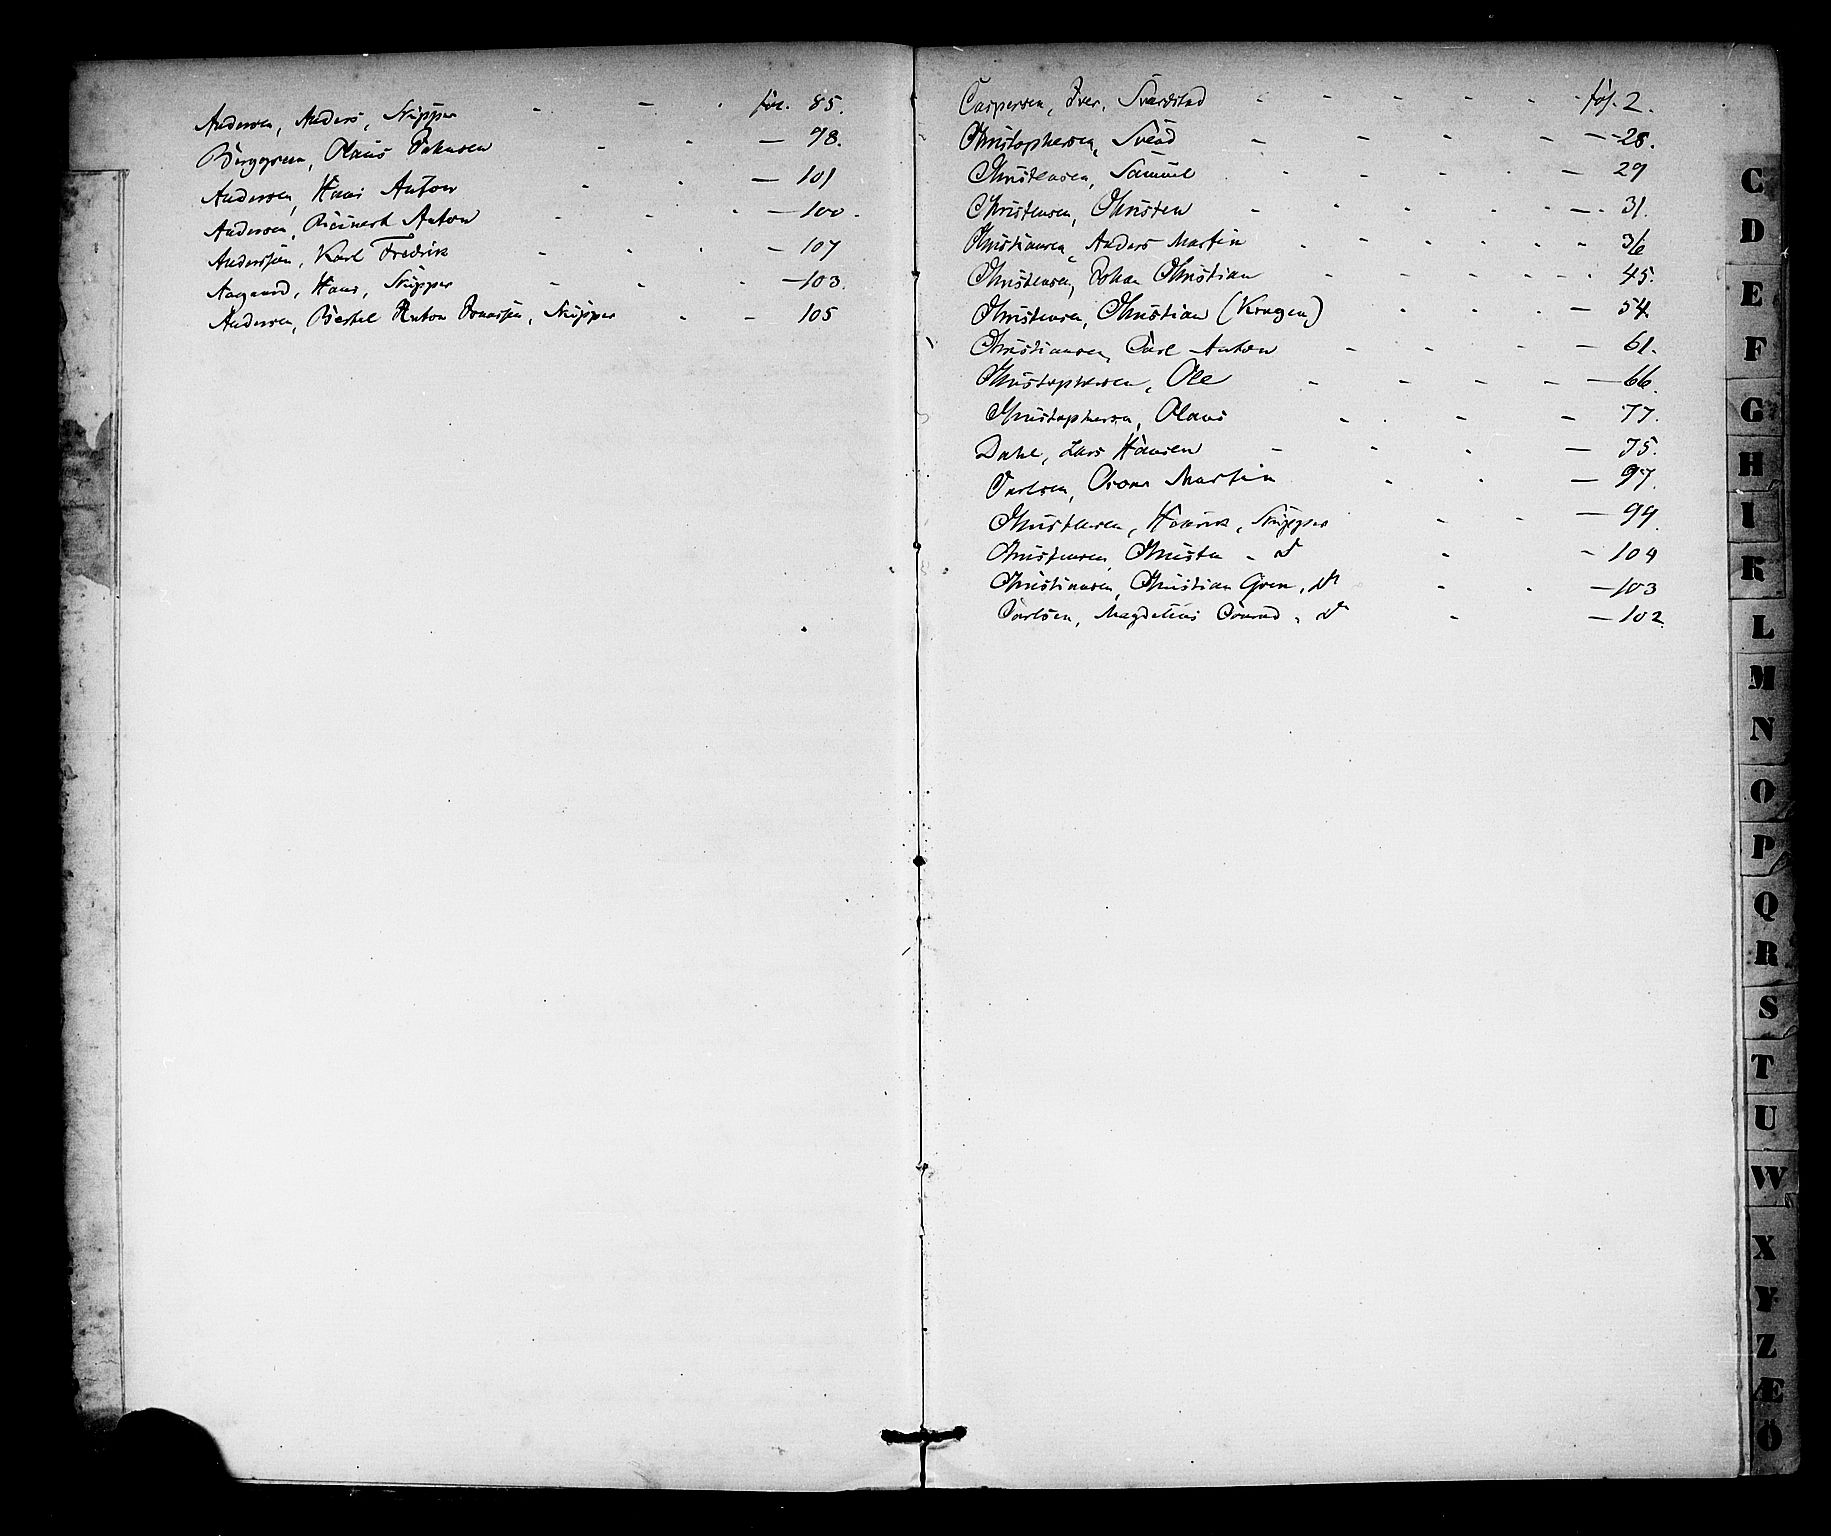 Andersen, Anders, Skipper - - - fol. 85.
Berggreen, Olaus Johnsen - - — 98.
Andersen, Hans Anton - - — 101
Andersen, Reinert Anton - - - — 100.
Anderssen, Karl Fredrik - - - 107
Aagaard, Hans, Skipper - - - — 103.
Andersen, Bertel Anton Jonassen, Skipper - - 105
Caspersen, Iver, Svardstad - - - - - - fol. 2.
Christophersen, Svend - - - - — 28.
Christensen, Samuel - - - - - — 29
Christensen, Christen - - - - - — 31.
Christiansen, Anders Martin - - - - - 36
Christensen, Johan Christian - - - - 45.
Christensen, Christian (Krogen) - - - — 54
Christiansen, Carl Anton - - - - — 61.
Christophersen, Ole - - - - — 66.
Christophersen, Olaus - - - 77.
Dahl, Lars Hansen - - - — 75.
Carlsen, Oscar Martin - - — 97.
Christensen, Henrik, Skipper - - — 99.
Christensen, Christen - d° - - 104
Christiansen, Christian Gren, d° - - — 103
Carlsen, Magdelius Conrad - d° - — 102.
C
D
E
F
G
H
I
K
L
M
N
O
P
Q
R
S
T
U
W
X
Y
Z
Æ
Ö